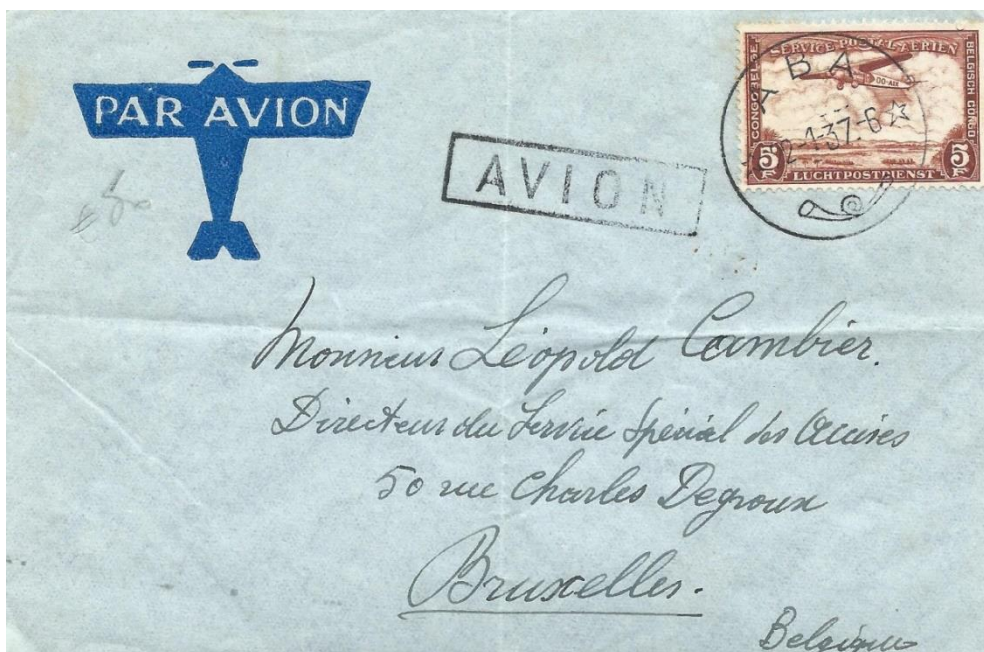 PAR AVION
AVION
SERVICE POSTAL AÉRIEN
CONGO BELGE
BELGISCH CONGO
OO-AIR
5 F 5 F
LUCHTPOSTDIENST
ABA
2-1-37-6
Monsieur Léopold Cambier.
Directeur du Service Spécial des Accises
50 rue Charles Degroux
Bruxelles.
Belgique